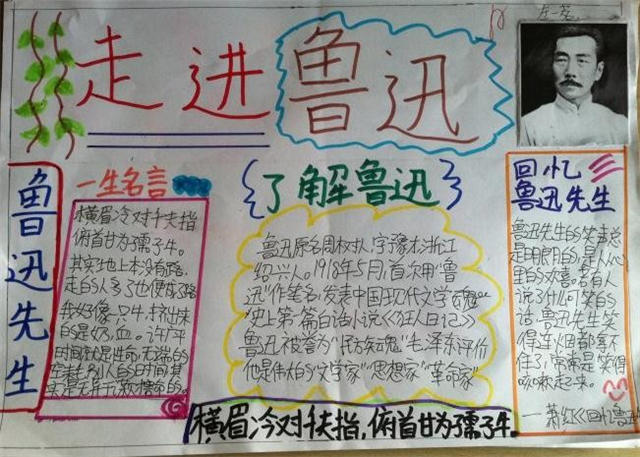 走进鲁迅
鲁迅先生
一生名言
横眉冷对千夫指
俯首甘为孺子牛。
其实地上本没有路,
走的人多了也便成了路
我好像一只牛,挤出来
的是奶,血。许广平
时间就是生命,无端的
空耗别人的时间其
实是无异于谋财害命的。
了解鲁迅
鲁迅原名周树人,字豫才,浙江
绍兴人。1918年5月,首次用“鲁
迅”作笔名,发表中国现代文学
史上第一篇白话小说《狂人日记》
鲁迅被誉为“民族魂”毛泽东评价
他是伟大的“文学家”“思想家”“革命家”
横眉冷对千夫指,俯首甘为孺子牛.
回忆
鲁迅先生
鲁迅先生的笑声总
是明朗的,是从心
里的欢喜。若有人
说了什么可笑的
话,鲁迅先生笑
得连烟都拿不
住了,常常是笑得
咳嗽起来。
—萧红《回忆鲁迅